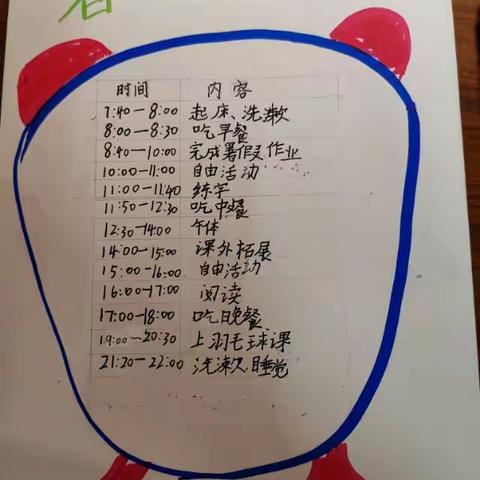 时间 内容
7:40—8:00 起床、洗漱
8:00—8:30 吃早餐
8:40—10:00 完成暑假作业
10:00—11:00 自由活动
11:00—11:40 练字
11:50—12:30 吃中餐
12:30—14:00 午休
14:00—15:00 课外拓展
15:00—16:00 自由活动
16:00—17:00 阅读
17:00—18:00 吃晚餐
19:00—20:30 上羽毛球课
21:20—22:00 洗漱、睡觉